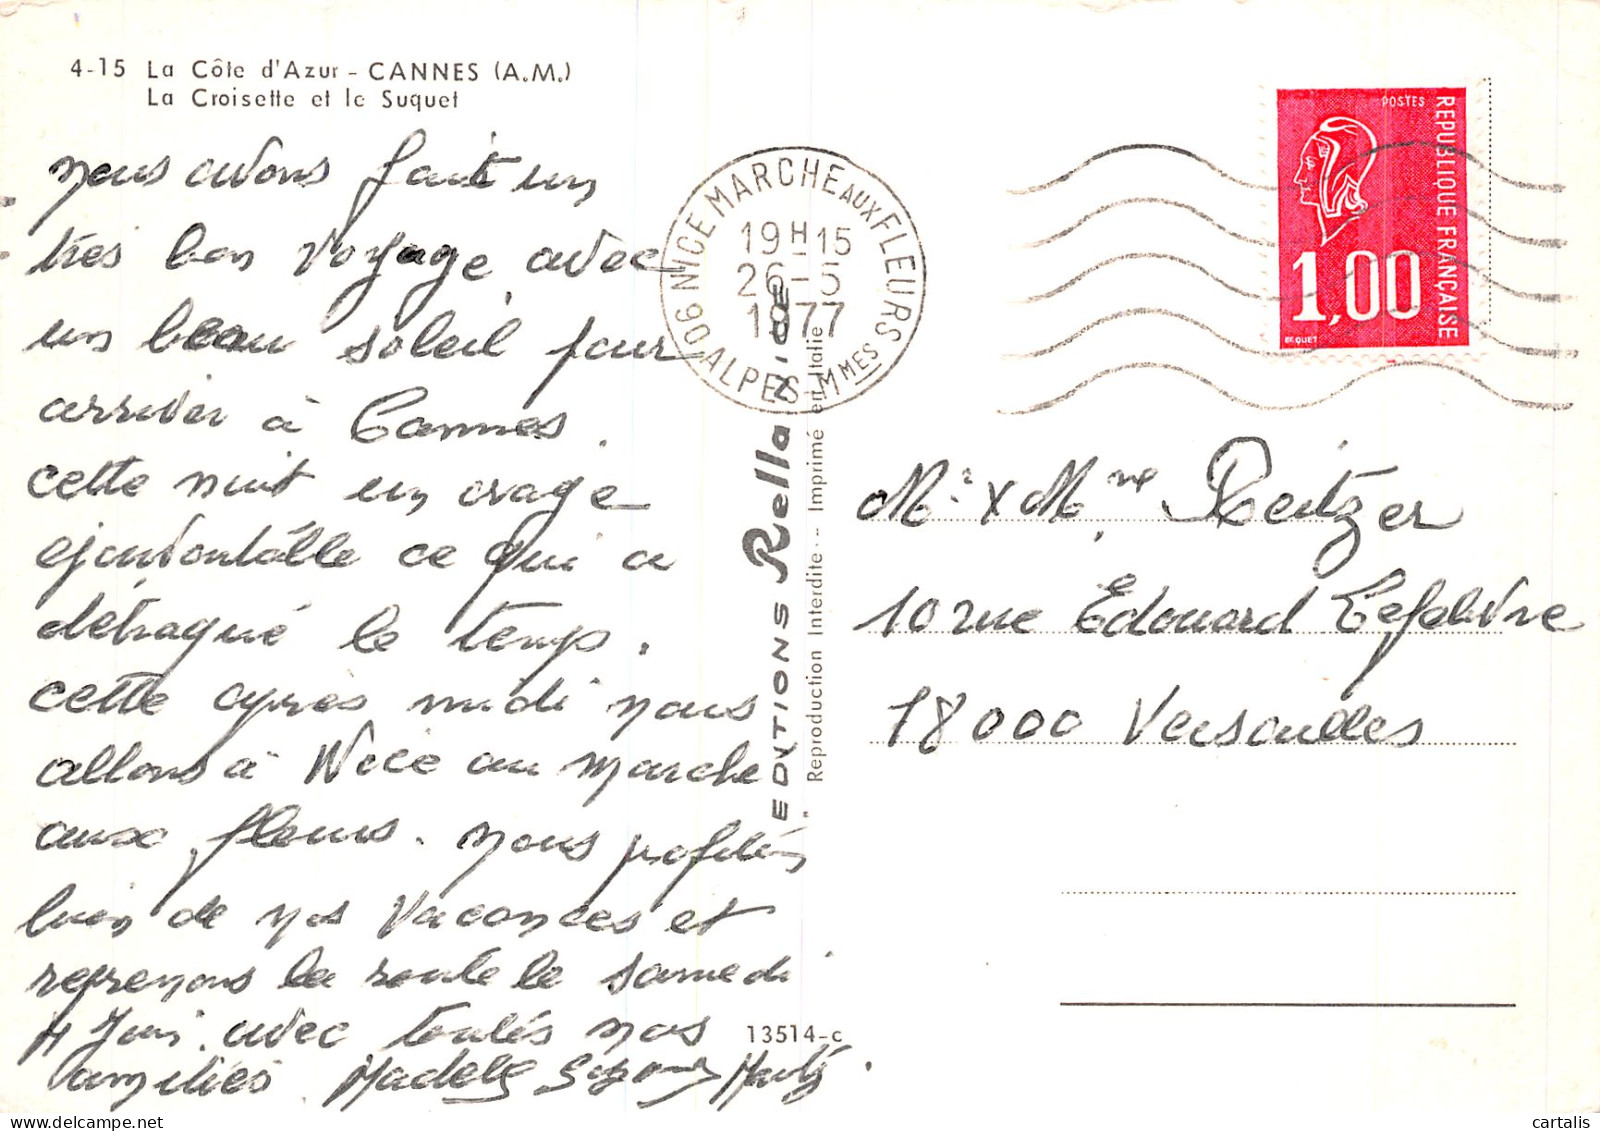 4-15 La Côte d'Azur - CANNES (A.M.)
La Croisette et le Suquet
nous avons fait un
très bon voyage avec
un beau soleil pour
arriver à Cannes.
cette nuit un orage
épouvontable ce qui a
détraqué le temps.
cette après midi nous
allons à Nice au marche
aux fleurs. nous profitons
bien de nos vacances et
reprenons la route le samedi
4 Juin. avec toutes nos
amitiés.
06 NICE MARCHE AUX FLEURS
19H15
26-5
1977
ALPES-MMES
EDITIONS Rella NICE
Reproduction Interdite -- Imprimé en Italie
13514-c
POSTES
REPUBLIQUE FRANÇAISE
1,00
BEQUET
Mr & Mme Reitzer
10 rue Edouard Lefebvre
78000 Versailles
cartalis